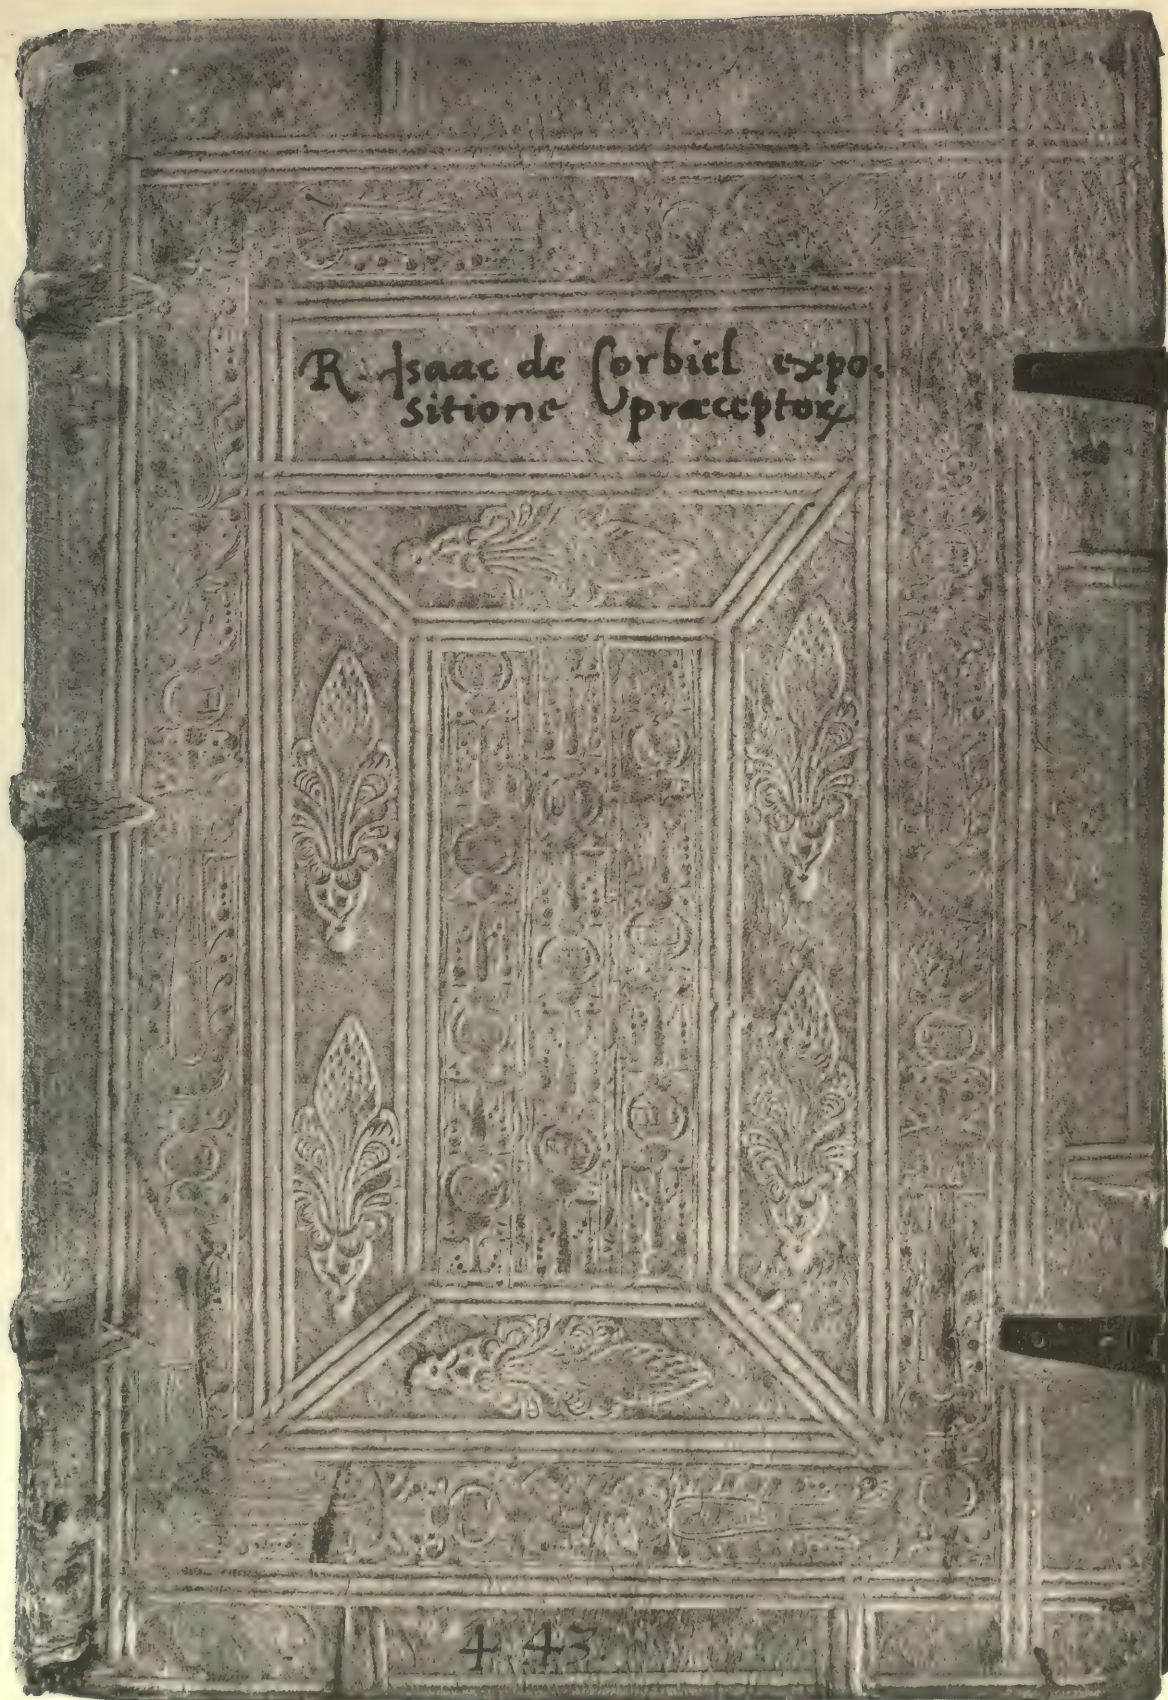 R. Isaac de Corbiel expo.
sitione præceptoꝝ
4.43.